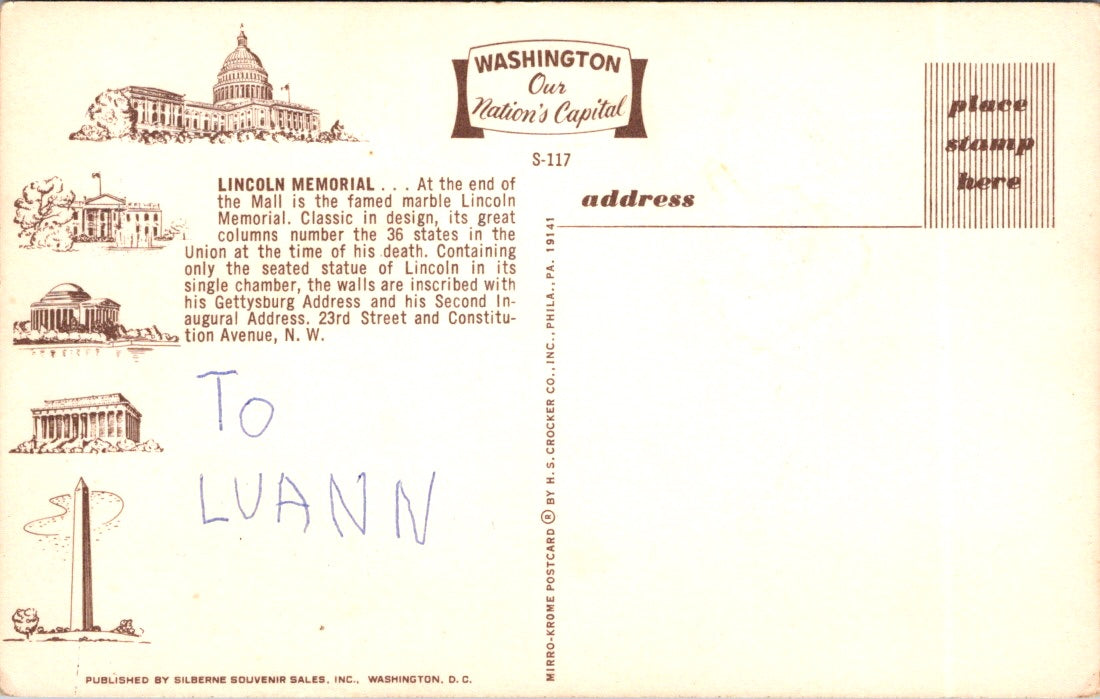 WASHINGTON
Our
Nation's Capital
S-117
place
stamp
here
address
LINCOLN MEMORIAL . . . At the end of
the Mall is the famed marble Lincoln
Memorial. Classic in design, its great
columns number the 36 states in the
Union at the time of his death. Containing
only the seated statue of Lincoln in its
single chamber, the walls are inscribed with
his Gettysburg Address and his Second In-
augural Address. 23rd Street and Constitu-
tion Avenue, N. W.
TO
LUANN
MIRRO-KROME POSTCARD ® BY H. S. CROCKER CO., INC., PHILA., PA. 19141
PUBLISHED BY SILBERNE SOUVENIR SALES, INC., WASHINGTON, D. C.